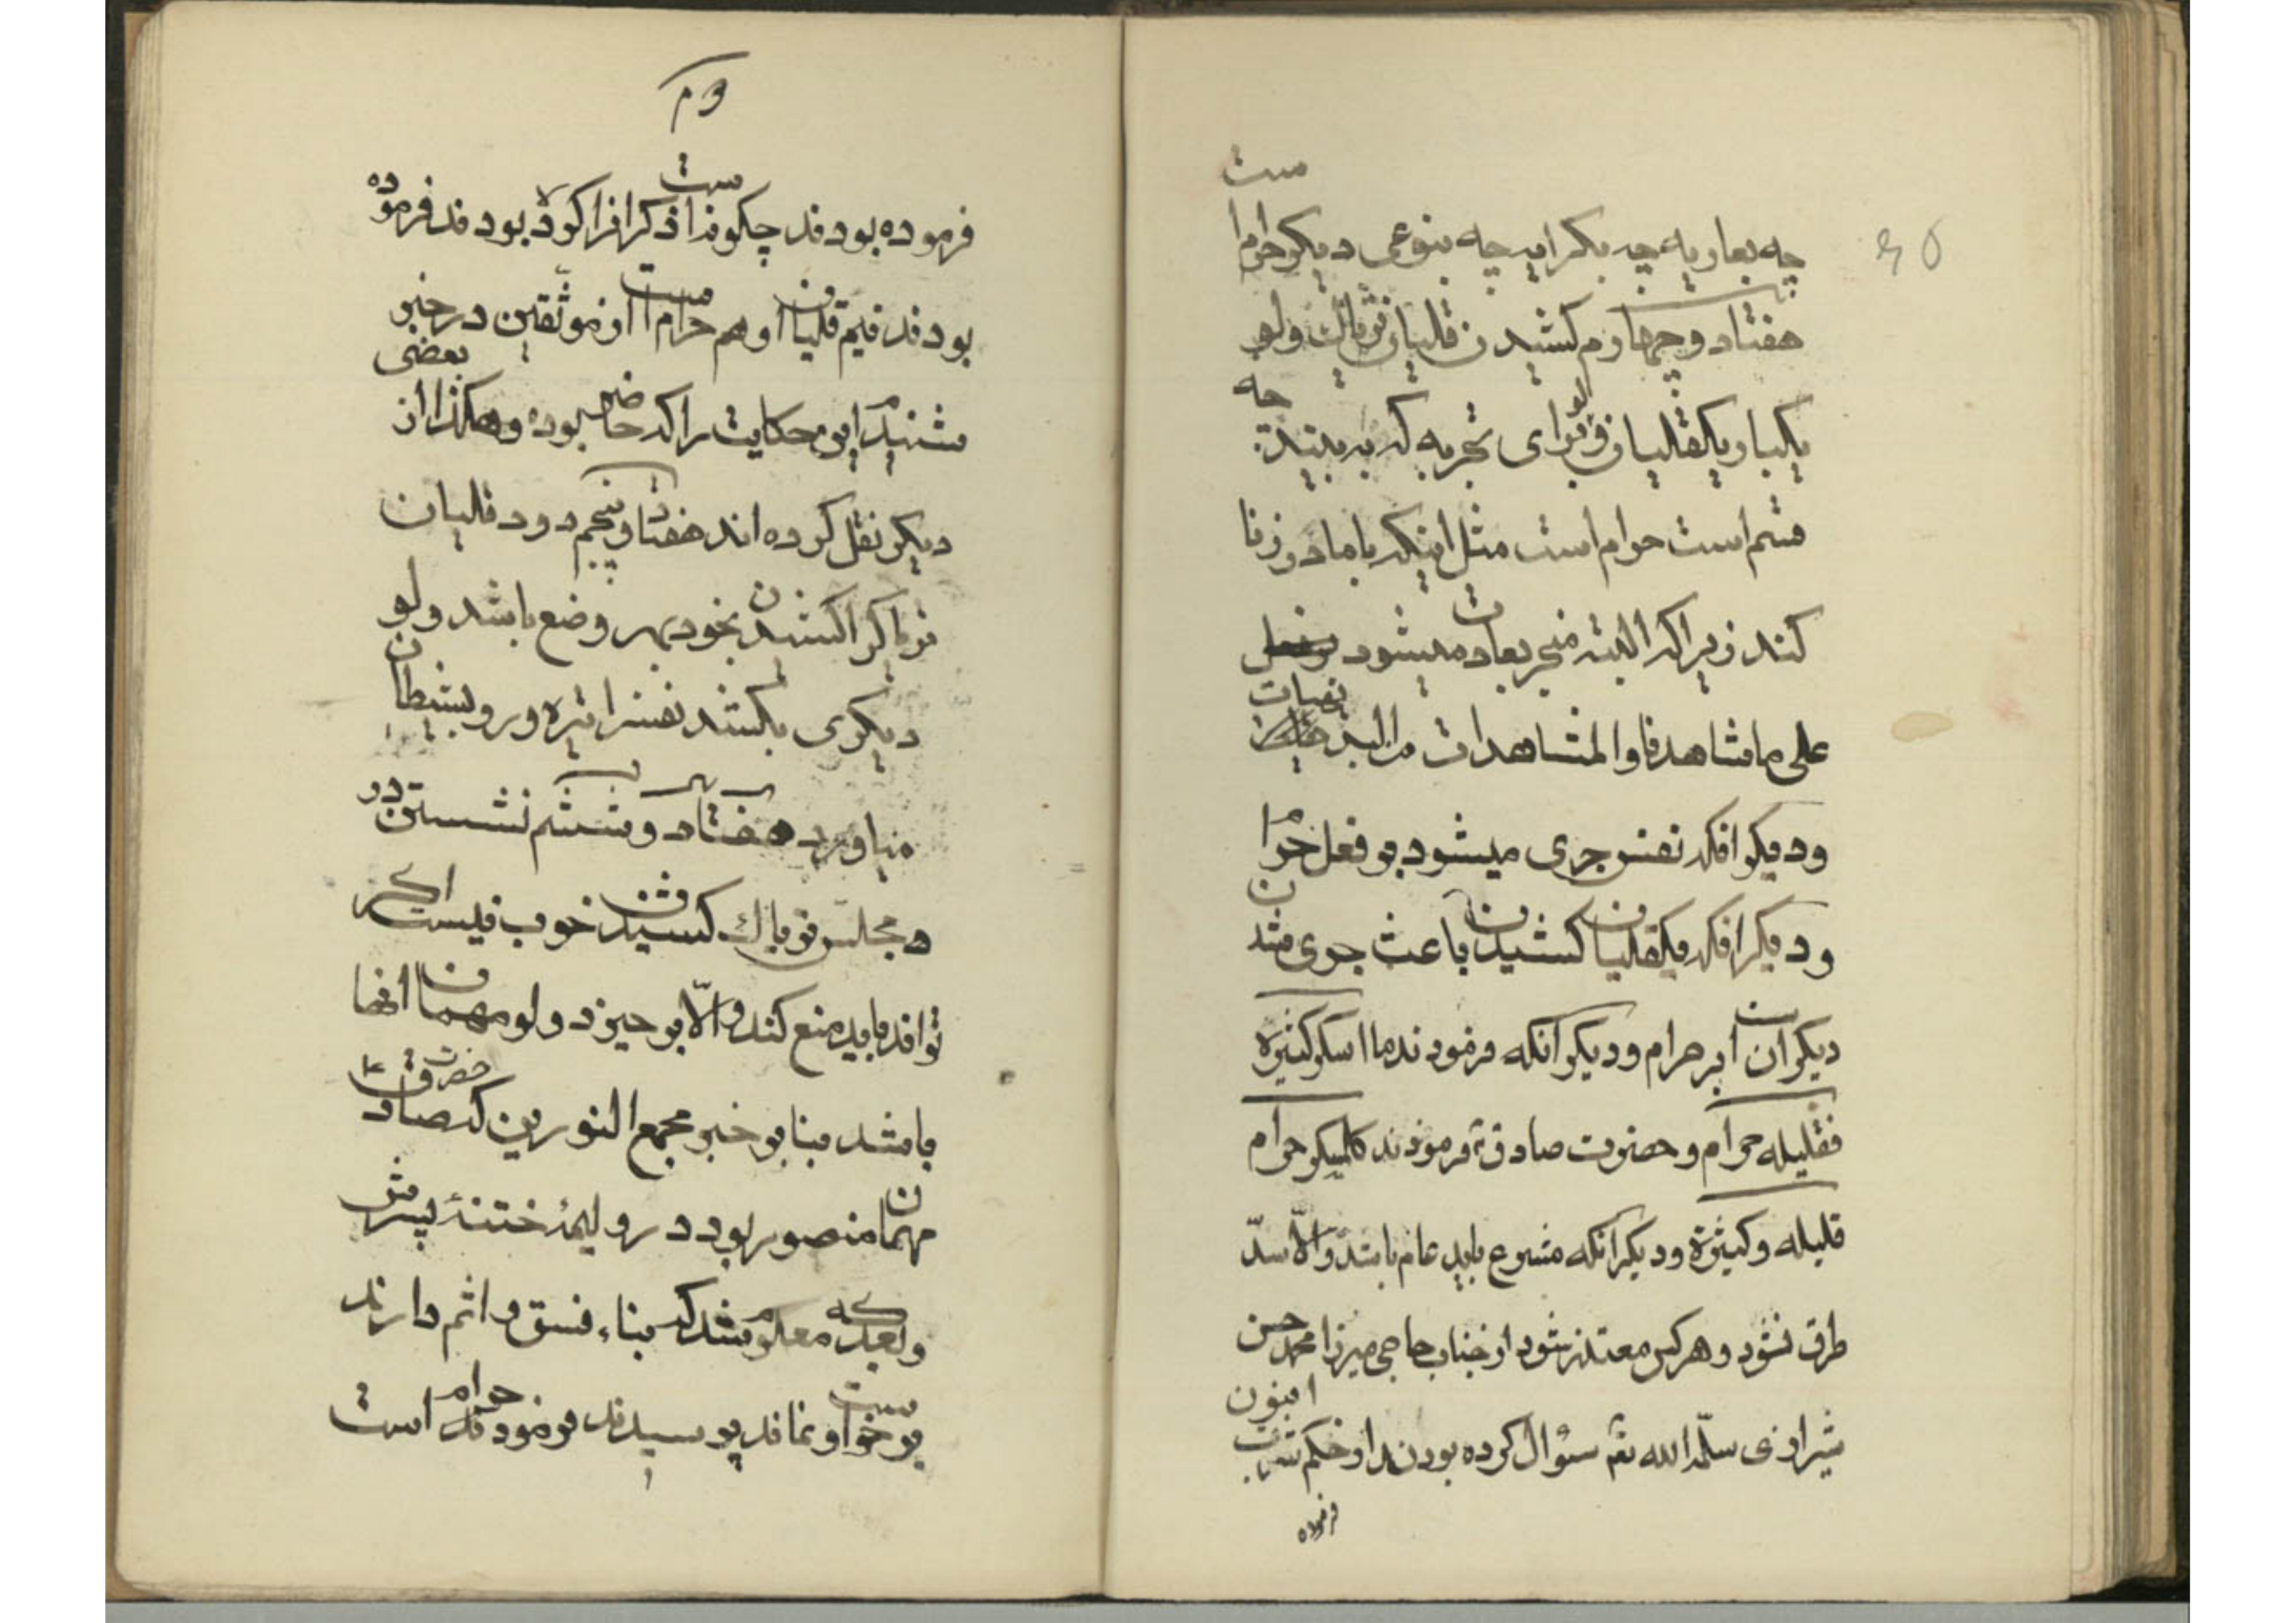 چه بعاریه چه بکرایه چه بنوعی دیگر حرامست
هفتاد و چهارم کشیدن قلیان تریاک ولو
یکبار و یکقلیان ولو برای تجربه که به بیند چه
قسم است حرام است مثل اینکه با مادر زنا
کند زیرا که البته منجر بعادت میشود
علی ما شاهدنا والمشاهدات من البدیهیات
و دیگر آنکه نفس جری میشود بر فعل حرام
و دیگر آنکه یکقلیان کشیدن باعث جری شدن
دیگران است بر حرام و دیگر آنکه فرمودند ما اسکر کثیره
فقلیله حرام و حضرت صادق ع فرمودند کلمسکر حرام
قلیله و کثیره و دیگر آنکه مشروع باید عام باشد والّا سدّ
طرق نشود و هر کس معتذر شود از جناب حاجی میرزا محمد حسن
شیرازی سلّمه الله سؤال کرده بودند از حکم شرب افیون
فرموده
فرموده بودند چگونه است ذکر آنرا کرده بودند فرموده
بودند نیم قلیان او هم حرام است از موثقین در خبر
شنیدم این حکایت را که حاضر بوده و هکذا از بعضی
دیگر نقل کرده اند هفتاد و پنجم دود قلیان
تریاک را کشیدن بخود بهر وضع باشد ولو
دیگری بکشد نفس را تیره و رو بشیطان
میاورد هفتاد و ششم نشستن در
مجلس تریاک کشیدن خوب نیست اگر
توانند باید منع کند والّا بر خیزد ولو مهمان آنها
باشد بنا بر خبر مجمع النورین که حضرت صادق ع
مهمان منصور بود در ولیمهٔ ختنهٔ پسرش
و بعد که معلوم شد که بناء فسق و اثم دارند
بر خواست و نماند پرسیدند فرمودند حرام است